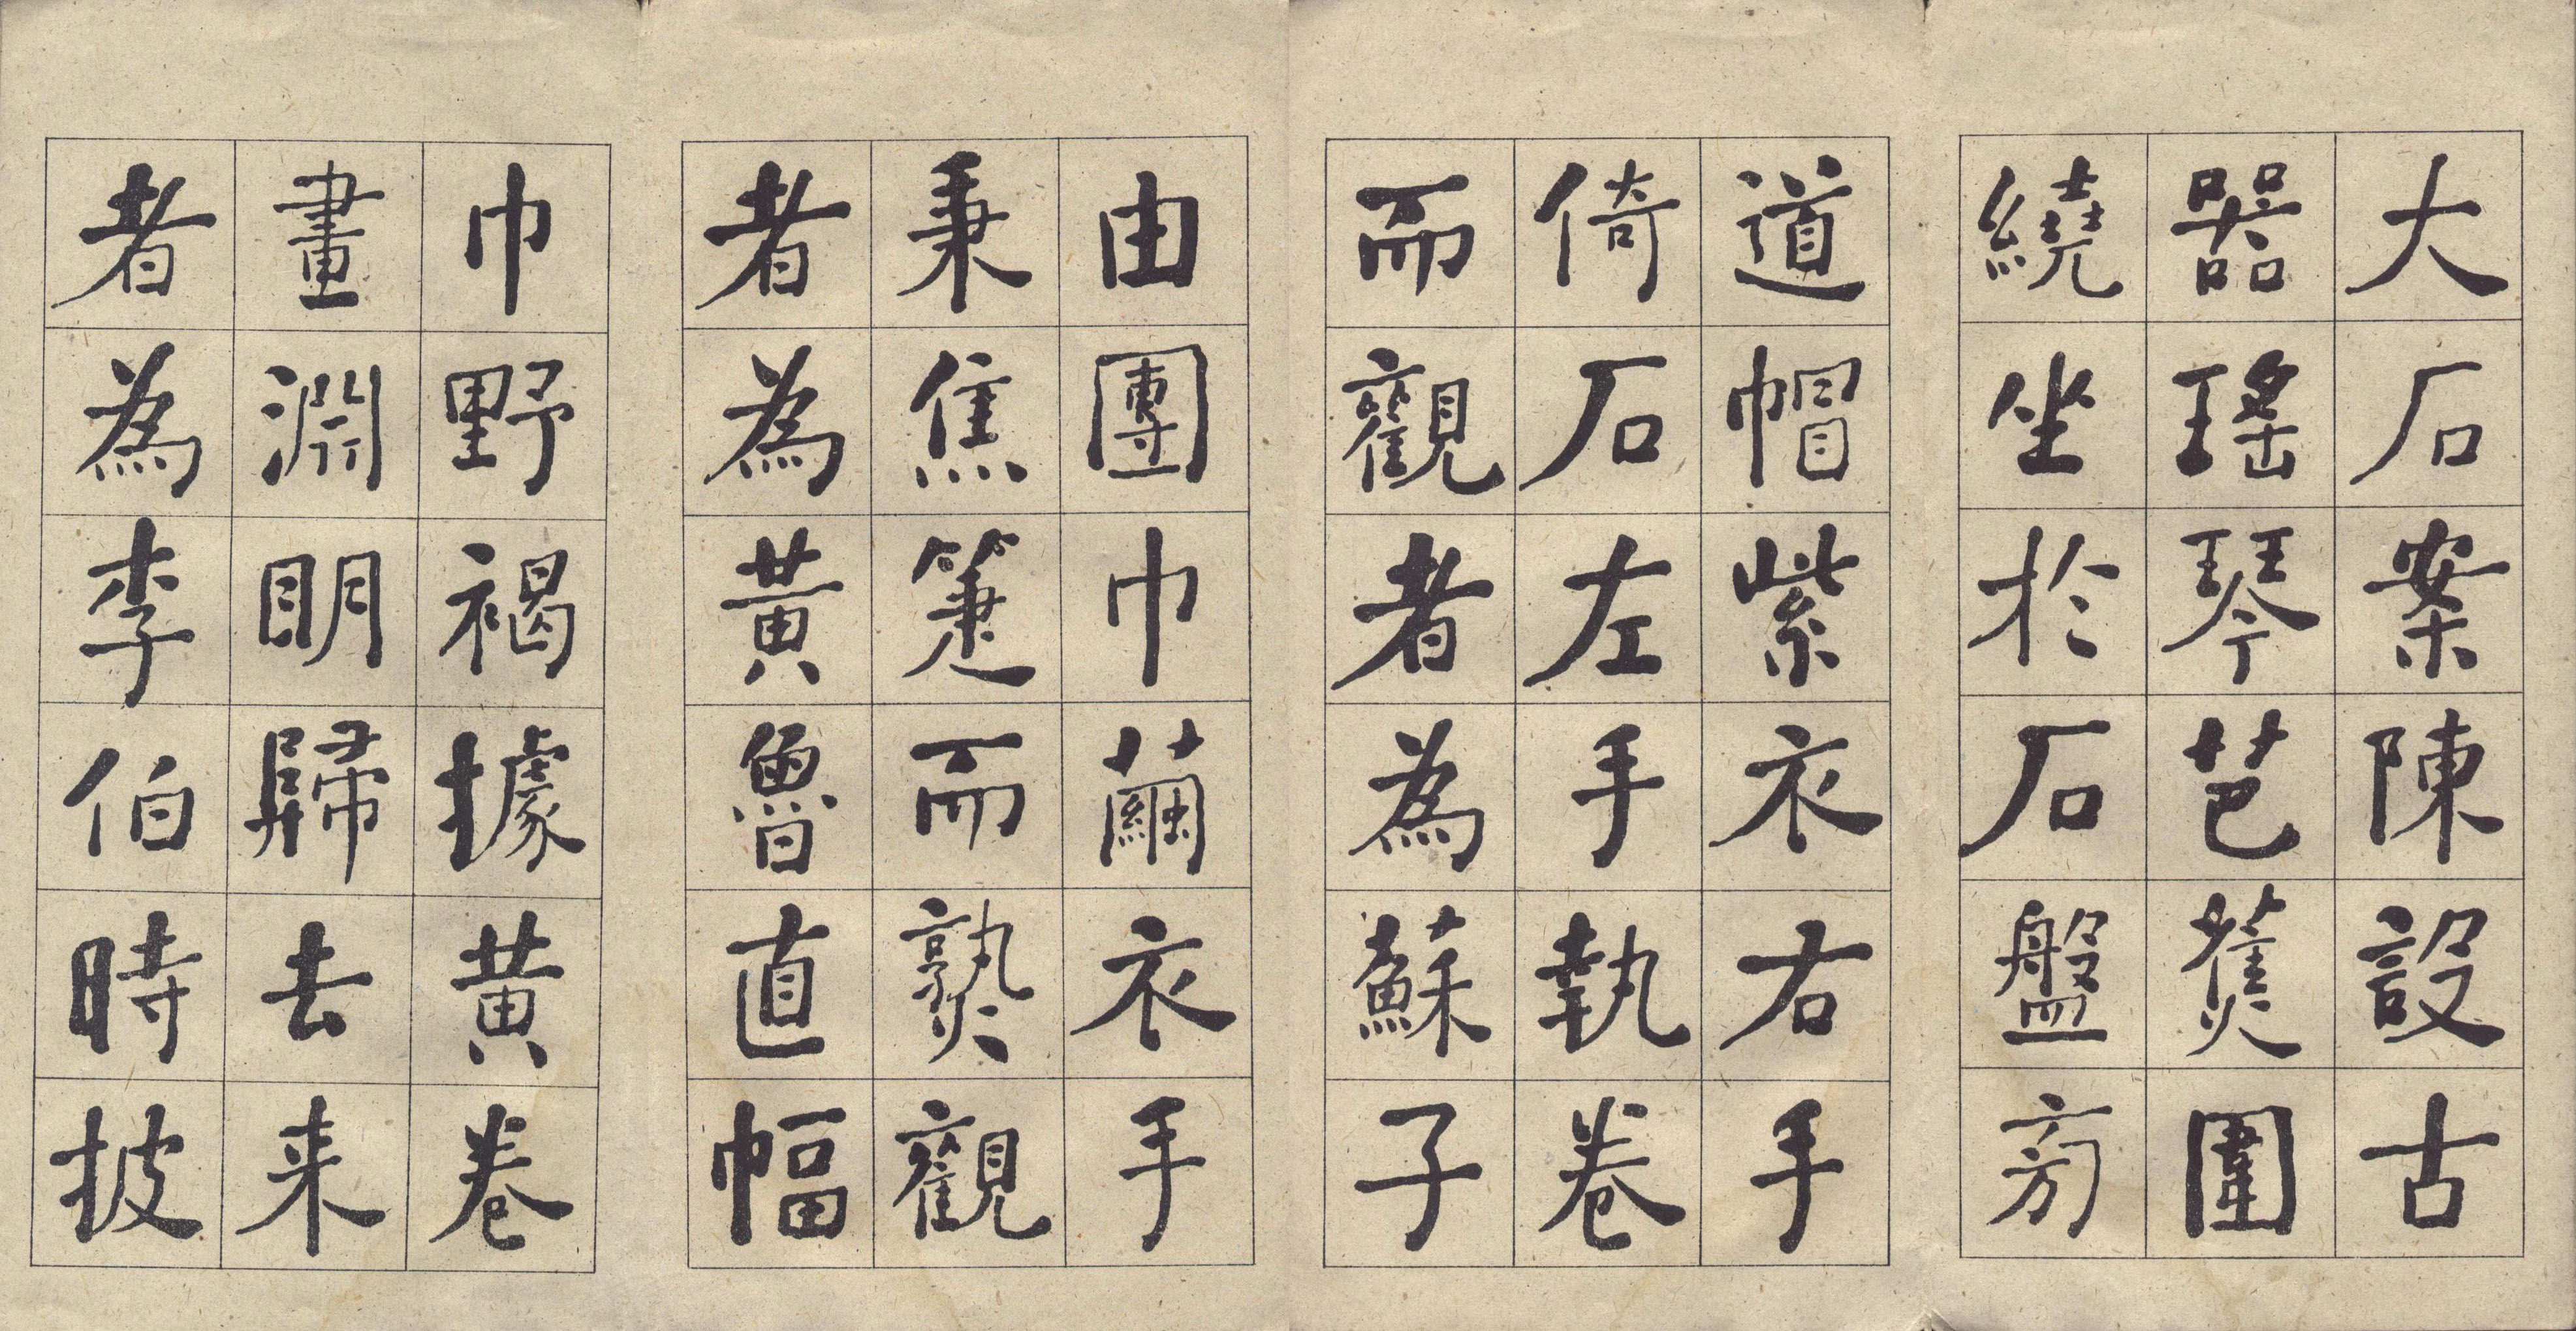 大石案陳設古
器瑤琴芭蕉圍
繞坐於石盤旁
道帽紫衣右手
倚石左手執卷
而觀者為蘇子
由團巾繭衣手
秉焦箑而熟觀
者為黃魯直幅
巾野褐據黃卷
畫淵明歸去来
者為李伯時披